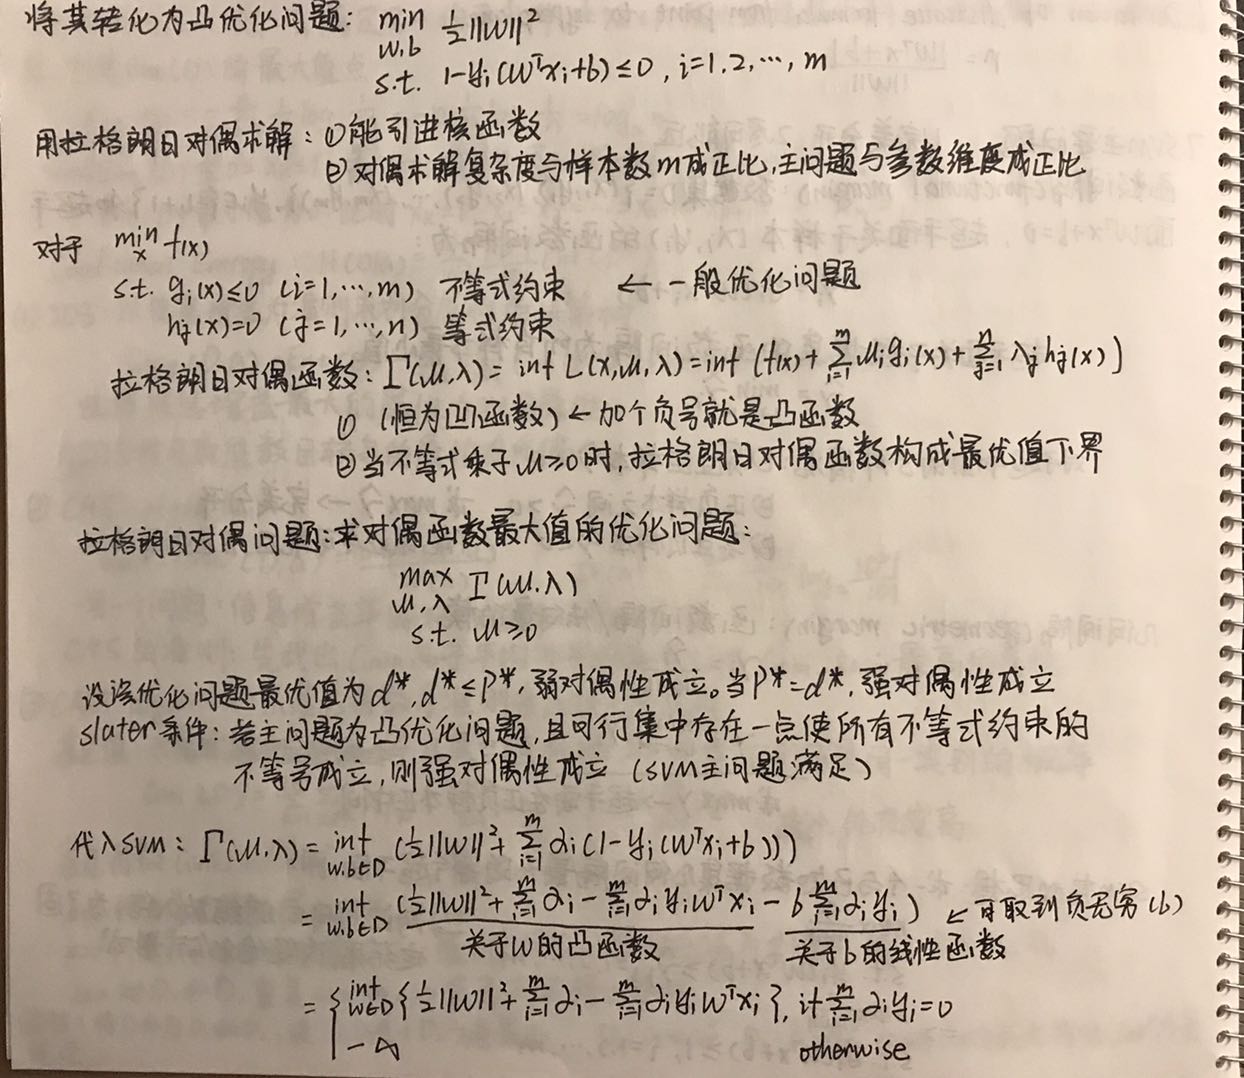 将其转化为凸优化问题: min w,b ½||w||²
s.t. 1-yᵢ(wᵀxᵢ+b)≤0, i=1,2,…,m
用拉格朗日对偶求解: ①能引进核函数
②对偶求解复杂度与样本数m成正比,主问题与参数维度成正比
对于 min x f(x)
s.t. gᵢ(x)≤0 (i=1,…,m) 不等式约束 ← 一般优化问题
hⱼ(x)=0 (j=1,…,n) 等式约束
拉格朗日对偶函数: Γ(μ,λ)= inf L(x,μ,λ)=inf (f(x)+∑ᵢ₌₁ᵐ μᵢgᵢ(x)+∑ⱼ₌₁ⁿ λⱼhⱼ(x))
① (恒为凹函数) ← 加个负号就是凸函数
②当不等式乘子μ≥0时,拉格朗日对偶函数构成最优值下界
拉格朗日对偶问题:求对偶函数最大值的优化问题:
max μ,λ Γ(μ,λ)
s.t. μ≥0
设该优化问题最优值为d*,d*≤p*,弱对偶性成立。当p*=d*,强对偶性成立
slater条件: 若主问题为凸优化问题,且可行集中存在一点使所有不等式约束的
不等号成立,则强对偶性成立 (SVM主问题满足)
代入SVM: Γ(μ,λ) = inf w,b∈D (½||w||²+∑ᵢ₌₁ᵐ αᵢ(1-yᵢ(wᵀxᵢ+b)))
= inf w,b∈D (½||w||²+∑ᵢ₌₁ᵐ αᵢ-∑ᵢ₌₁ᵐ αᵢyᵢwᵀxᵢ - b∑ᵢ₌₁ᵐ αᵢyᵢ) ← 可取到负无穷(b)
关于w的凸函数 关于b的线性函数
= { inf w∈D {½||w||²+∑ᵢ₌₁ᵐ αᵢ-∑ᵢ₌₁ᵐ αᵢyᵢwᵀxᵢ}, if ∑ᵢ₌₁ᵐ αᵢyᵢ=0
-∞ otherwise